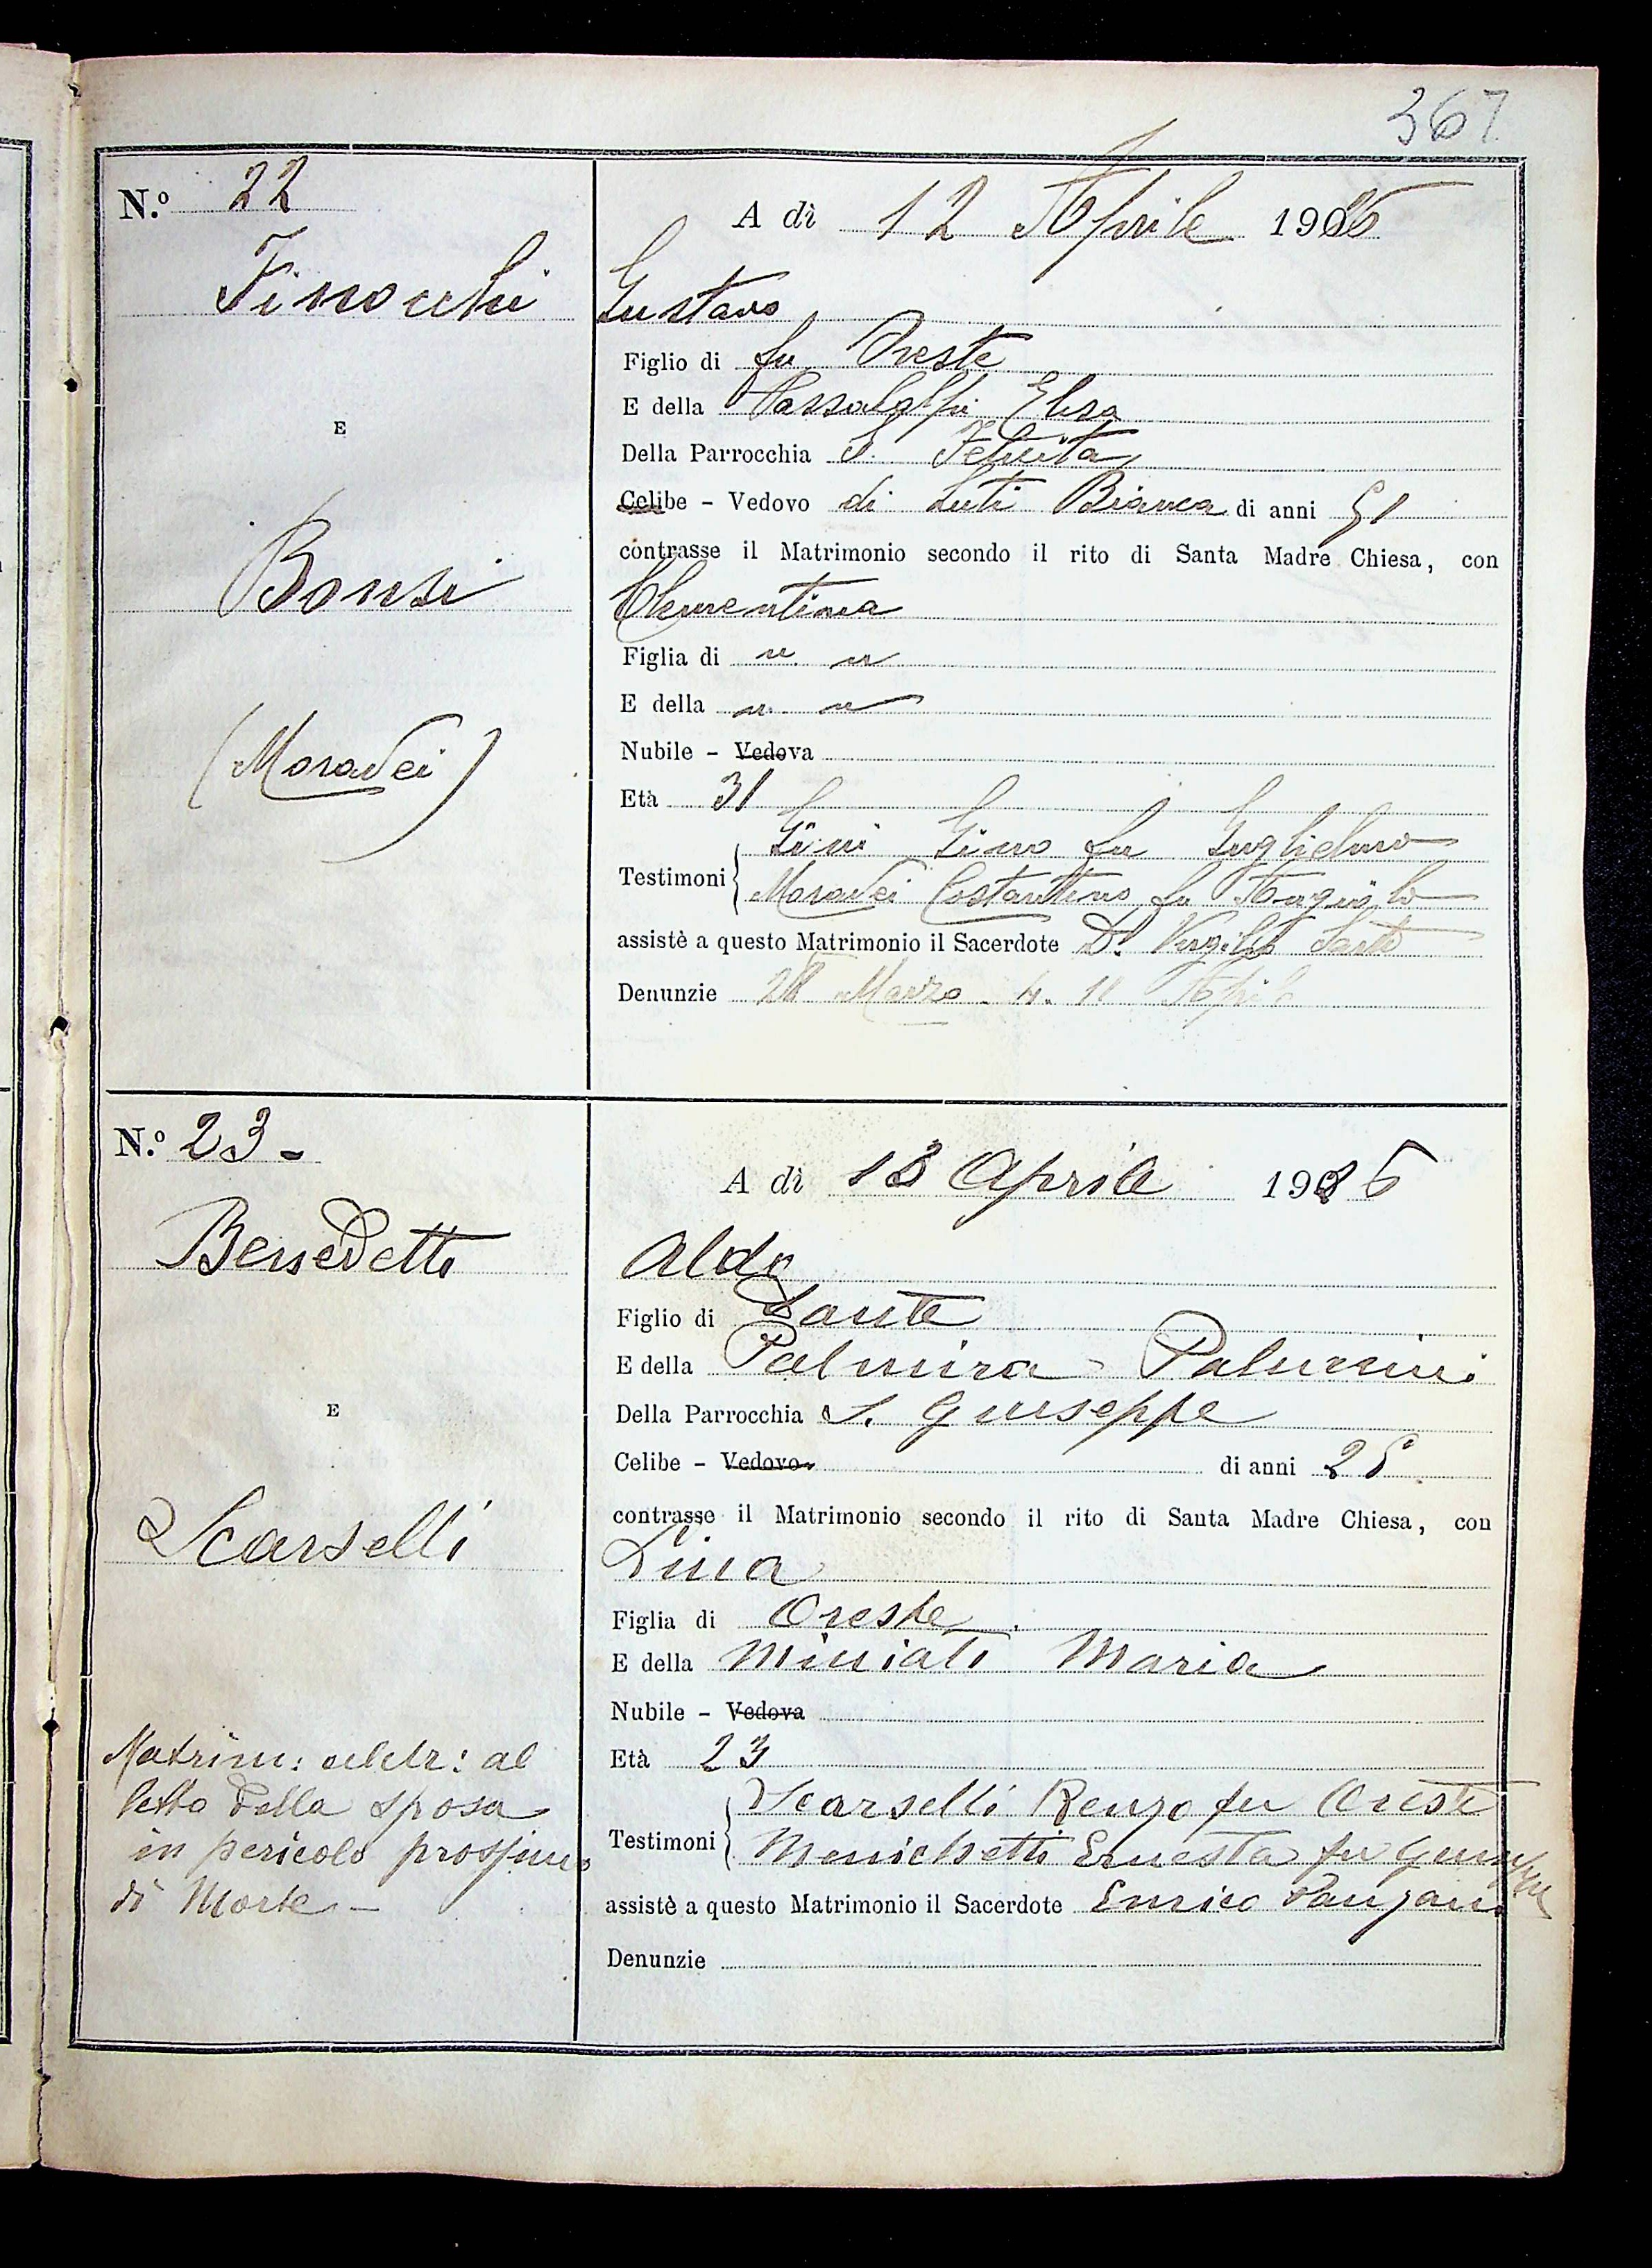 367
N.º 22
A dì 12 Aprile 1906
Finocchi
Gustavo
Figlio di fu Oreste
E della Elisa
E
Della Parrocchia S. Felicita
Celibe - Vedovo di Luti Bianca di anni 51
contrasse il Matrimonio secondo il rito di Santa Madre Chiesa, con
Bonsi
Clementina
Figlia di n. n
E della n. n
(Moradei)
Nubile - Vedova
Età 31
Gini Gino fu Guglielmo
Testimoni Moradei Costantino fu
assistè a questo Matrimonio il Sacerdote D. Virgilio
Denunzie 28 Marzo 4. 11 Aprile
N.º 23 -
A dì 13 Aprile 1906
Benedetti
Aldo
Figlio di Dante
E della Palmira
E
Della Parrocchia S. Giuseppe
Celibe - Vedovo di anni 25
contrasse il Matrimonio secondo il rito di Santa Madre Chiesa, con
Scarselli
Lina
Figlia di Oreste
E della Miniati Maria
Nubile - Vedova
Matrim: celebr: al
Età 23
letto della sposa
Scarselli Renzo fu Oreste
in pericolo prossimo
Testimoni Menichetti Ernesta fu Giuseppe
di Morte -
assistè a questo Matrimonio il Sacerdote Enrico Panzani
Denunzie